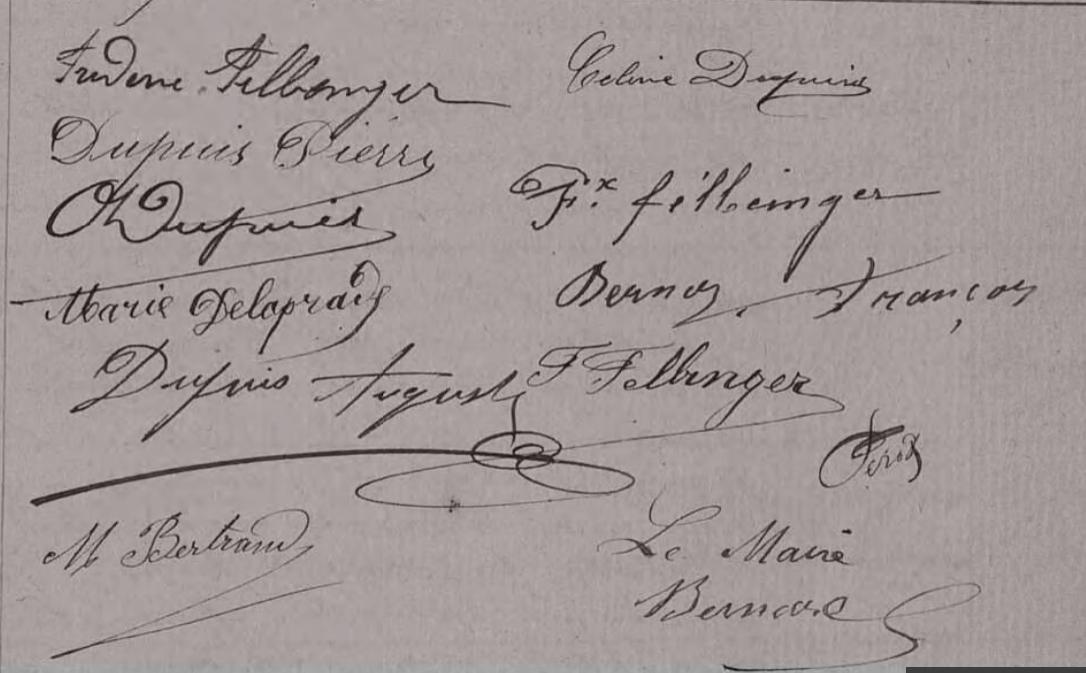 Frederic Fellbinger
Celine Dupuis
Dupuis Pierre
Dupuis
Fx. féllbinger
Marie Delaprade
Bernos François
Dupuis August
F Fellbinger
M Bertrand
Le Maire